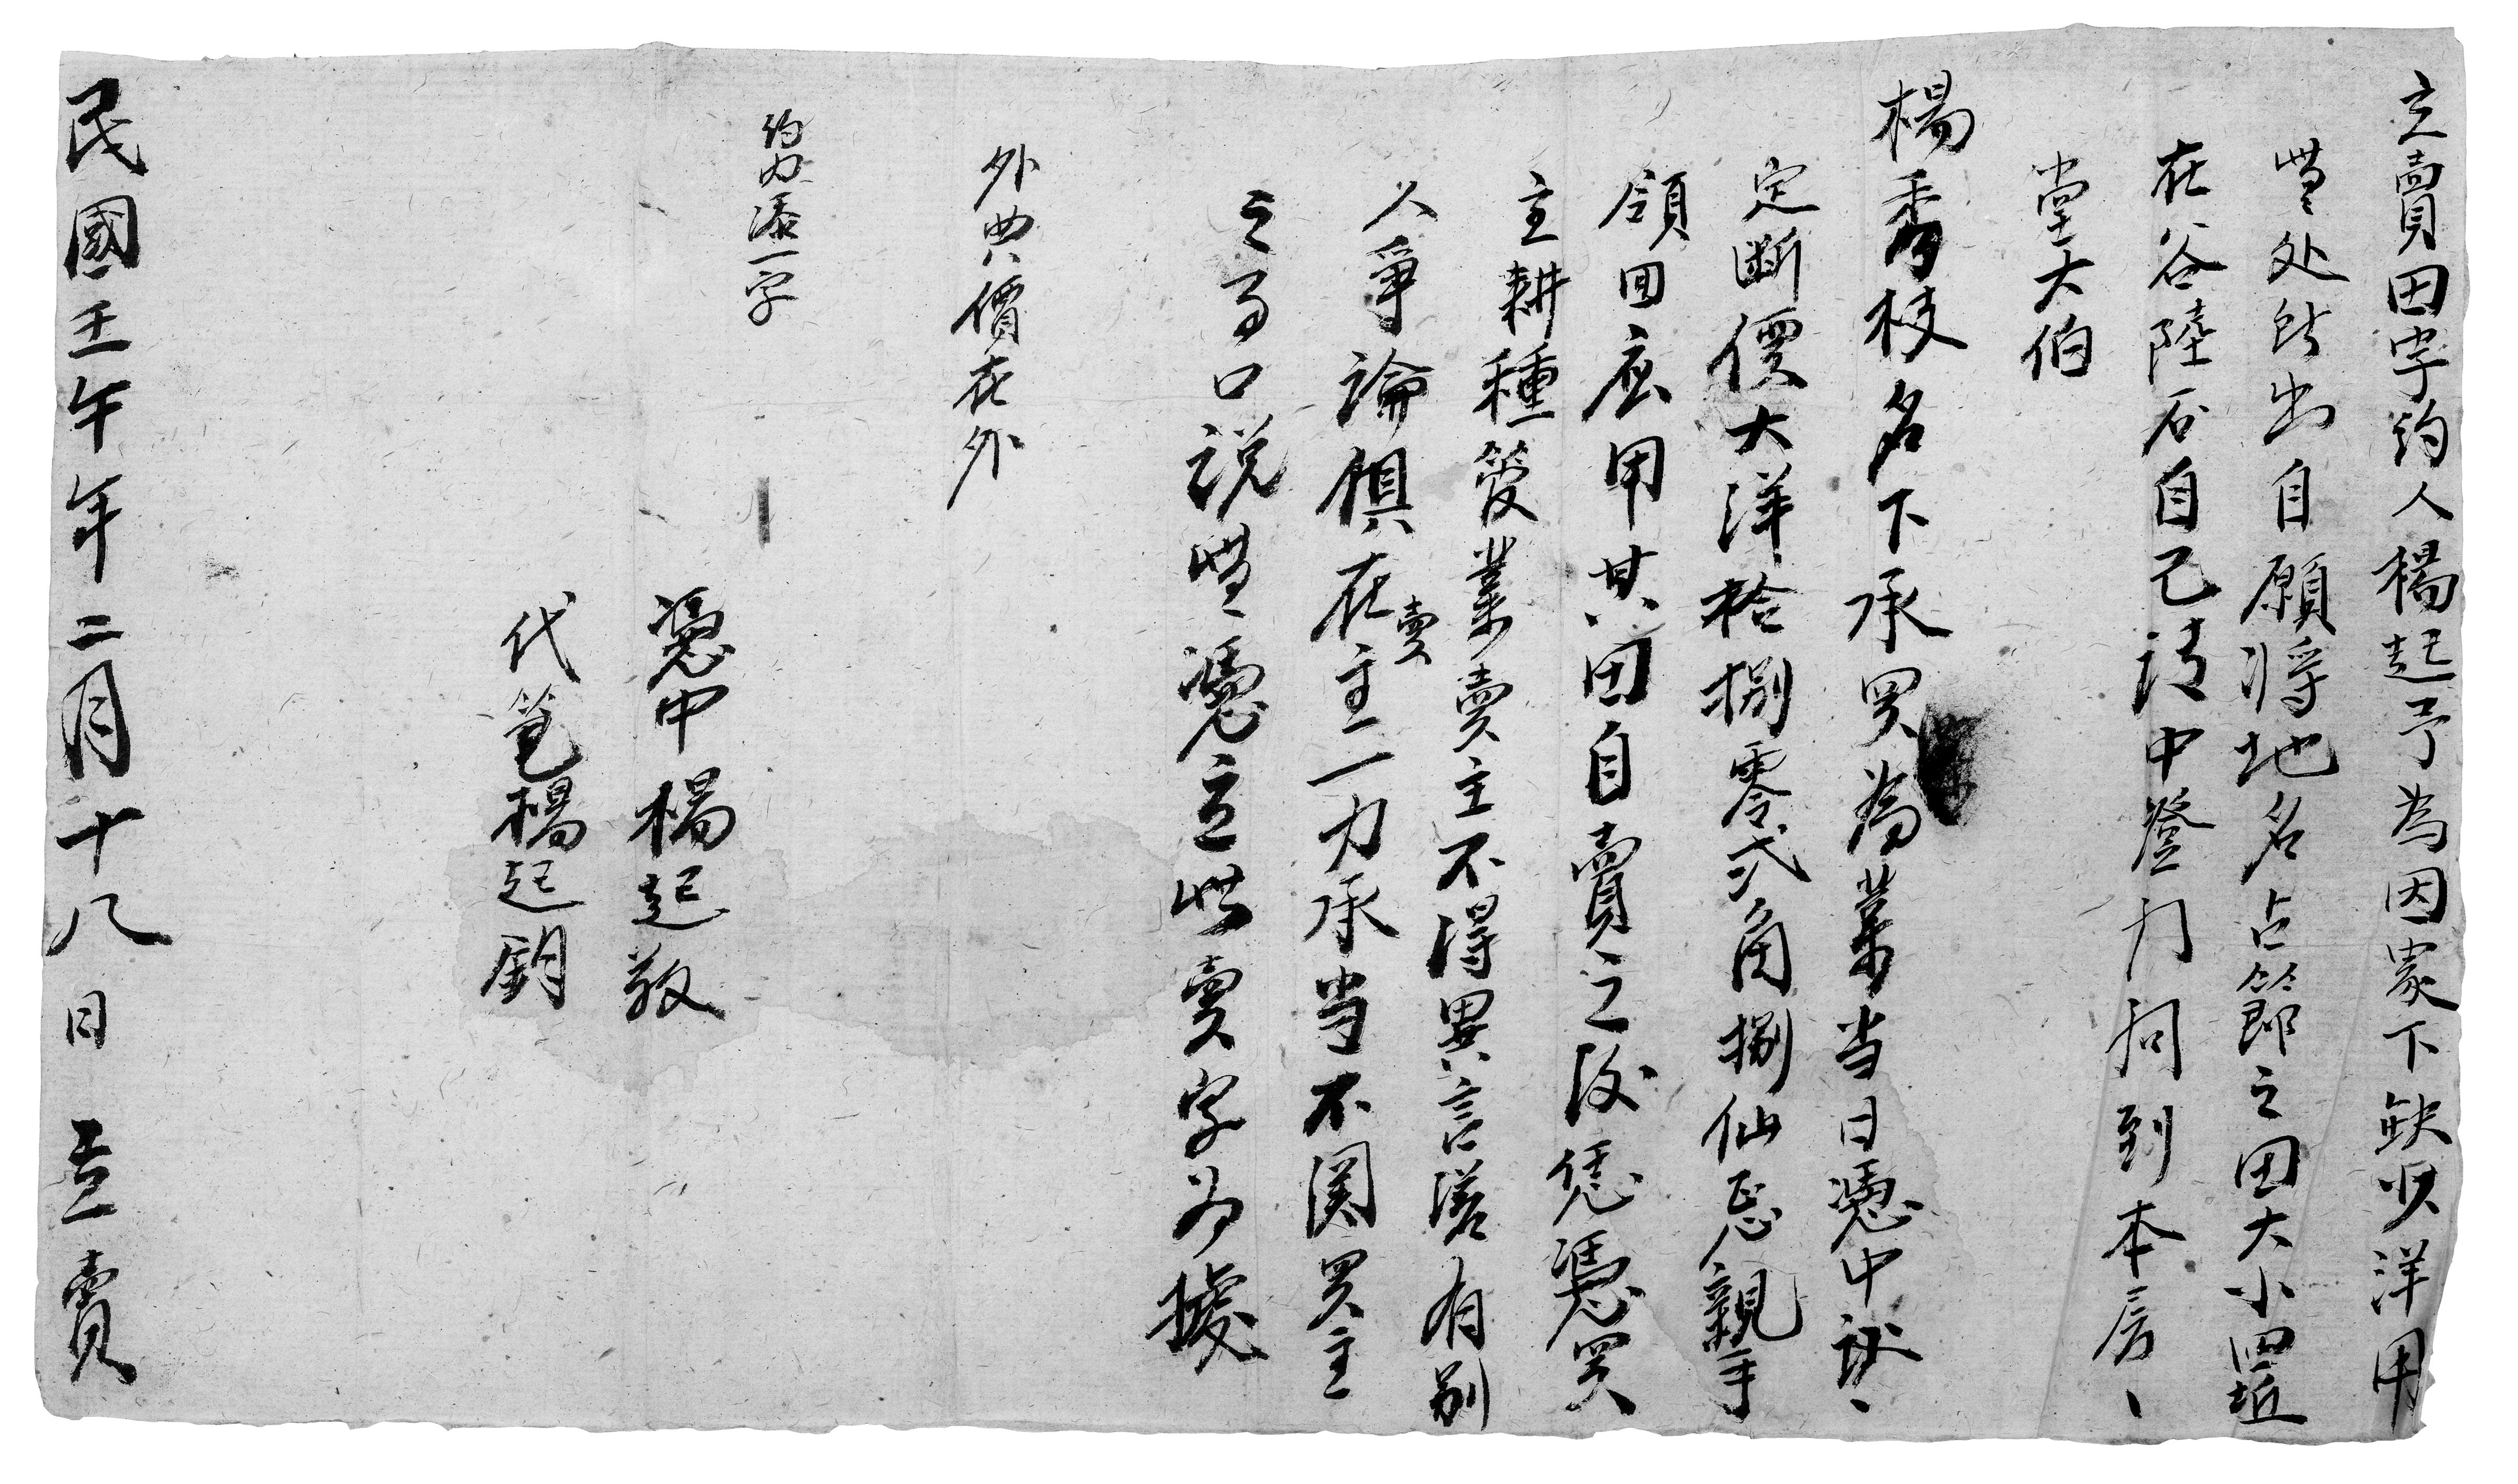 立賣田字約人楊起予為因家下缺少洋用
無处所出自願將地名占節之田大小四坵
在谷陸石自己請中登门问到本房
堂大伯
楊秀枝名下承買為業当日憑中證
定断價大洋拾捌零弍角捌仙正親手
領回应用其田自賣之後凭憑買
主耕種管業賣主不得異言滋有別
人爭論俱在賣主一力承当不関買主
之事口説無憑立此賣字为據
外典價在外
約内添一字
憑中楊起敬
代筆楊起鈅
民國壬午年二月十八日立賣